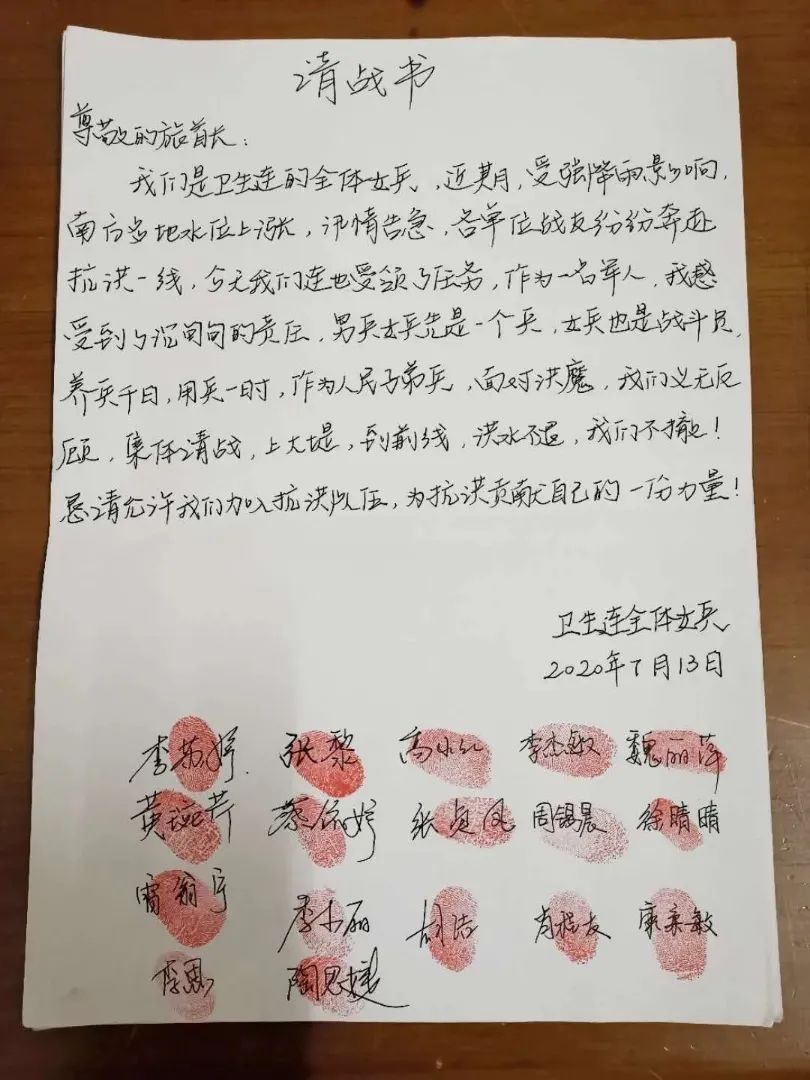 请战书
尊敬的旅首长：
我们是卫生连的全体女兵，近期，受强降雨影响，
南方多地水位上涨，汛情告急，各单位战友纷纷奔赴
抗洪一线，今天我们连也受领了任务，作为一名军人，我感
受到了沉甸甸的责任，男兵女兵先是一个兵，女兵也是战斗员，
养兵千日，用兵一时，作为人民子弟兵，面对洪魔，我们义无反
顾，集体请战，上大堤，到前线，洪水不退，我们不撤！
恳请允许我们加入抗洪队伍，为抗洪贡献自己的一份力量！
卫生连全体女兵
2020年7月13日
张黎 高小红 李杰敏 魏丽萍
张贞凤 周锡晨 徐晴晴
李小丽 胡洁 肖程友 康柔敏
李恩 陶思婕